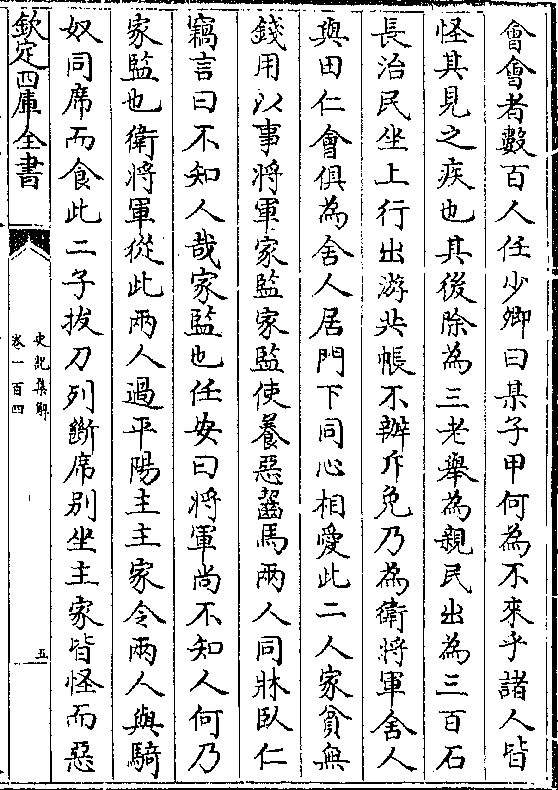 會會者數百人任少卿曰某子甲何為不來乎諸人皆
怪其見之疾也其後除為三老舉為親民出為三百石
長治民坐上行出游共帳不辦斥免乃為衛將軍舍人
與田仁會俱為舍人居門下同心相愛此二人家貧無
錢用以事將軍家監家監使養惡齧馬兩人同牀臥仁
竊言曰不知人哉家監也任安曰將軍尚不知人何乃
家監也衛將軍從此兩人過平陽主主家令兩人與騎
奴同席而食此二子拔刀列斷席別坐主家皆怪而惡
欽定四庫全書
史記集解
卷一百四
五